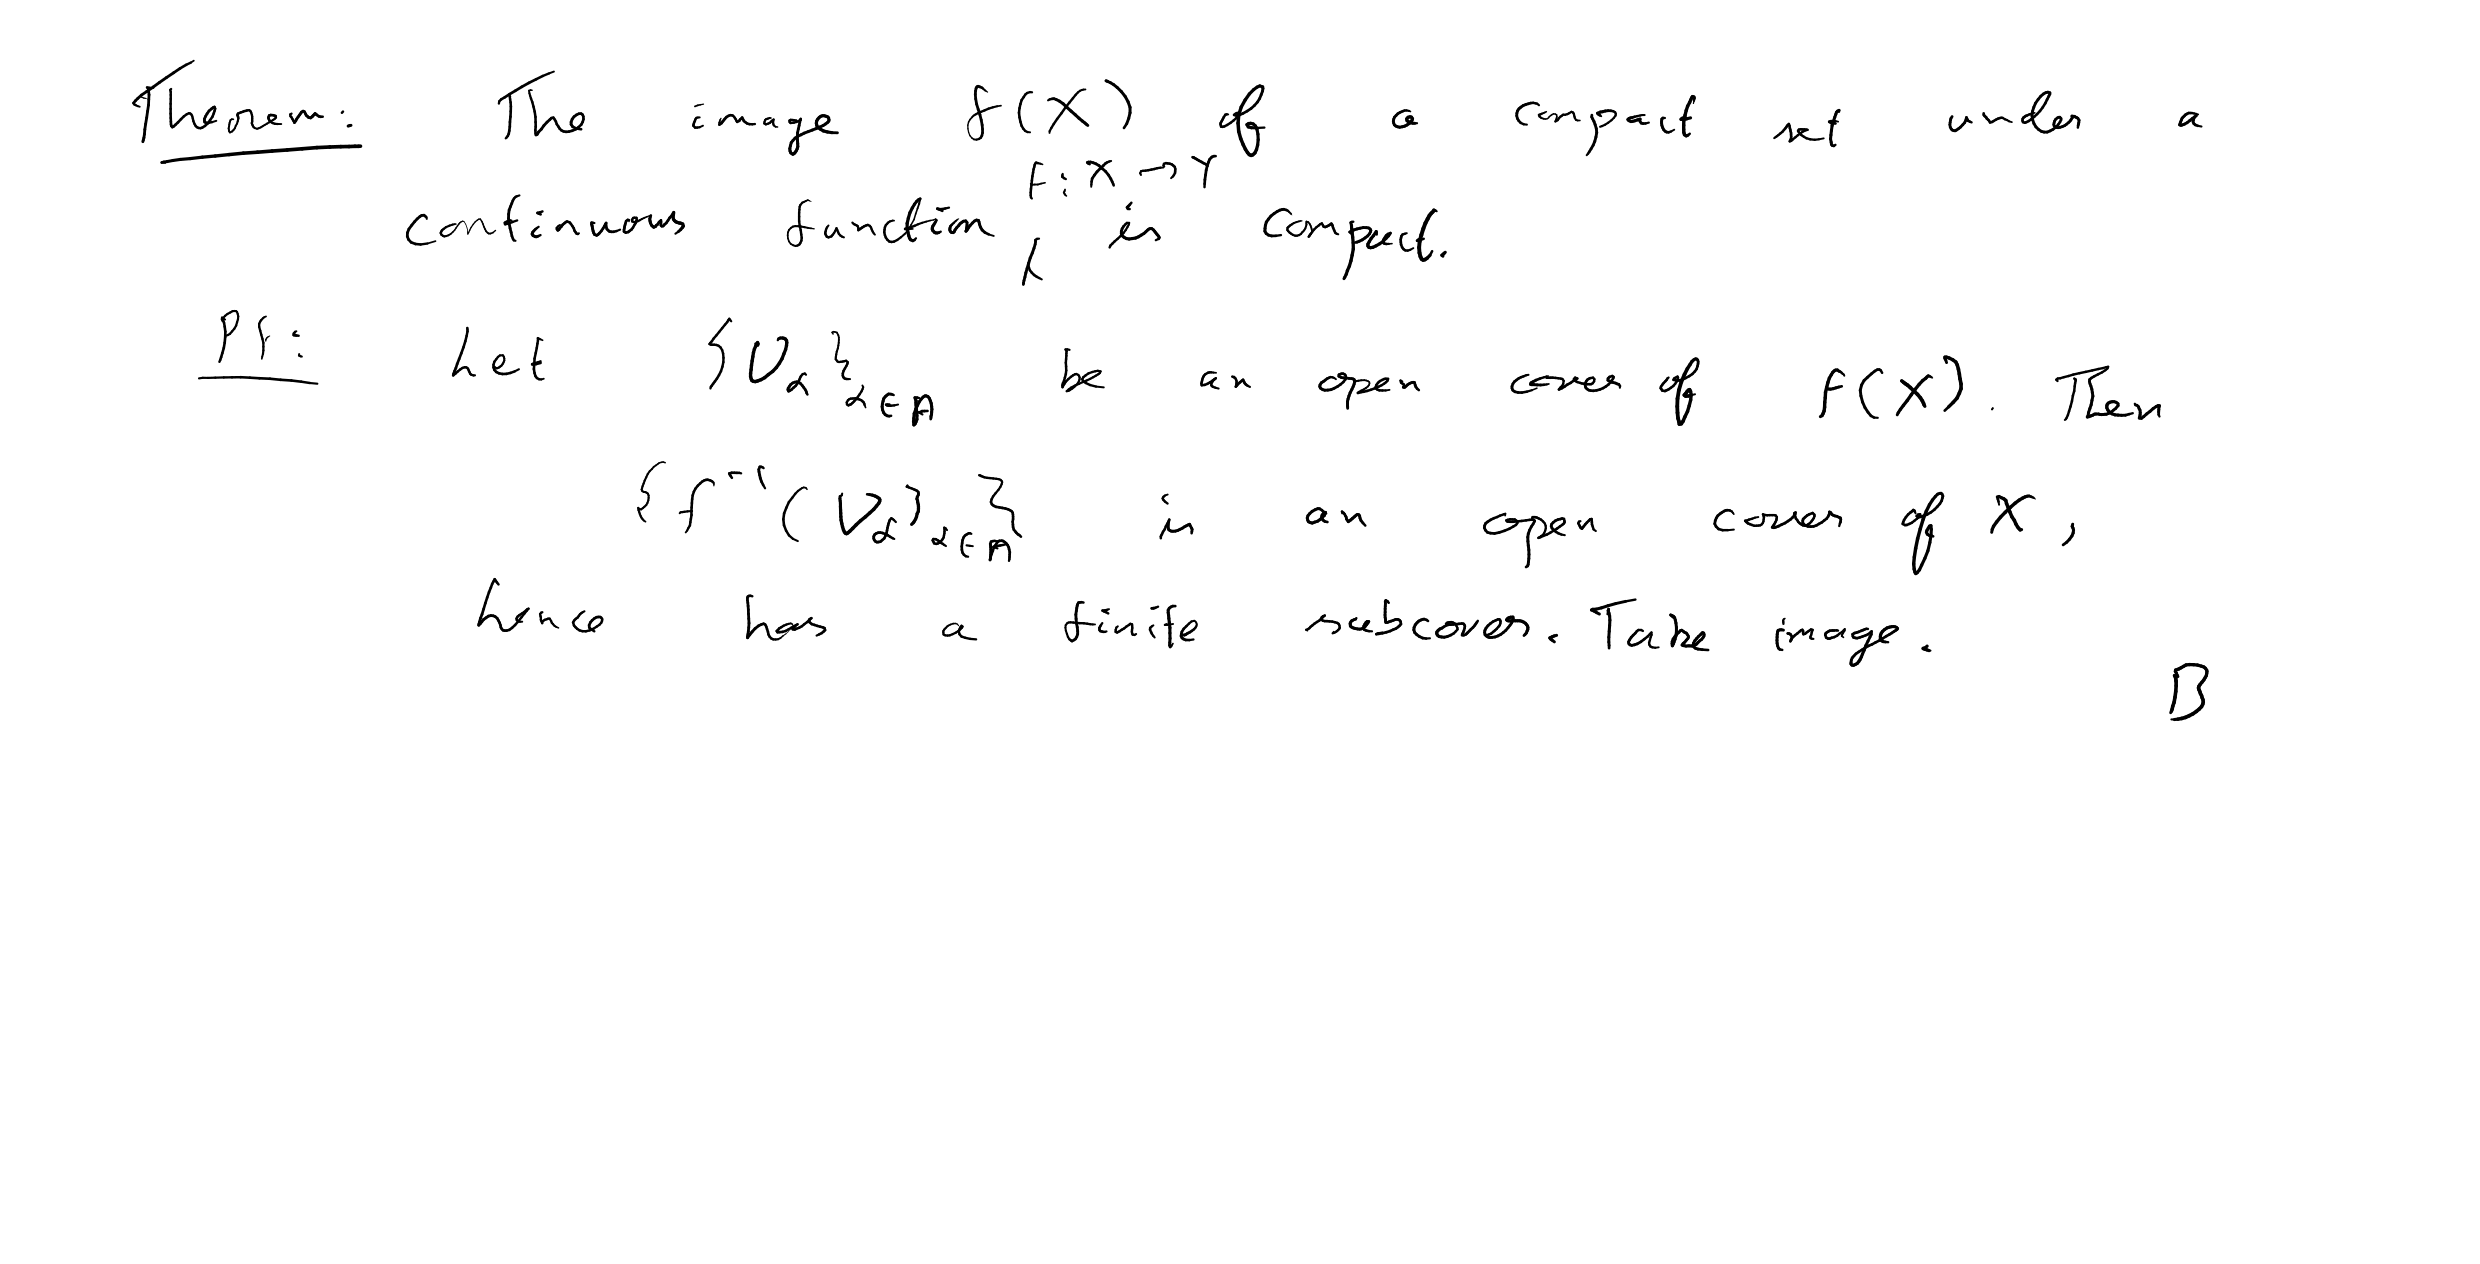 Theorem: The image f(X) of a compact set under a
f: X → Y
continuous function ∧ is compact.
Pf: Let {U_α}_{α∈A} be an open cover of f(X). Then
{f⁻¹(U_α)_{α∈A}} is an open cover of X,
hence has a finite subcover. Take image.